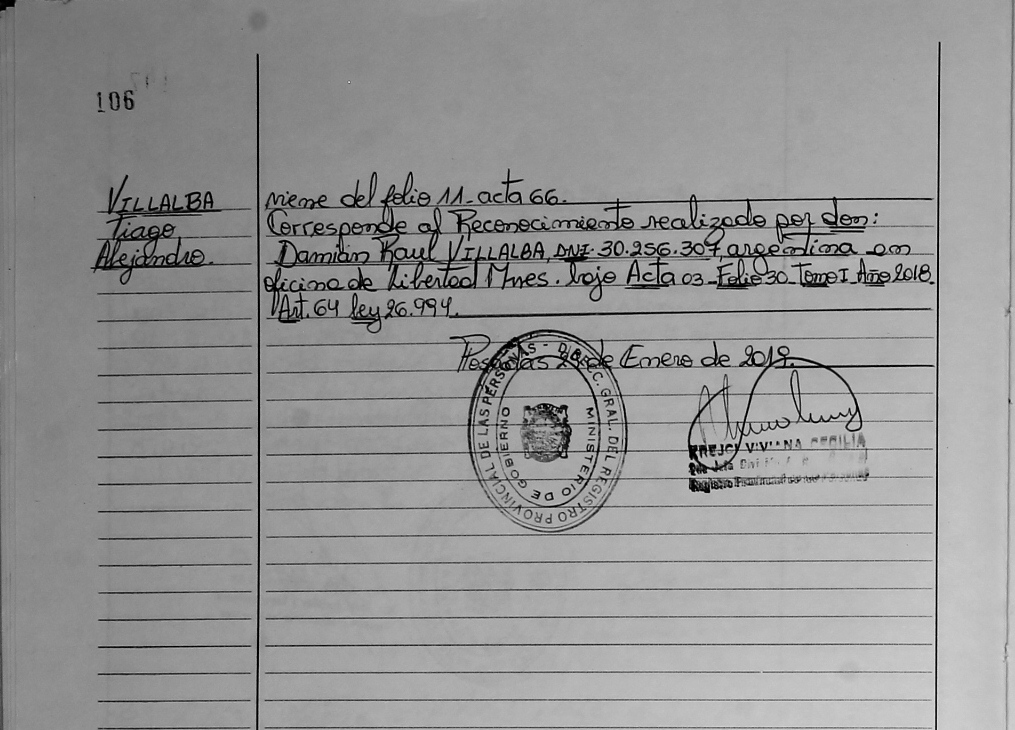 106
VILLALBA
Tiago
Alejandro.
viene del folio 11. acta 66.
Corresponde al Reconocimiento realizado por don:
Damián Raul VILLALBA, DNI. 30.256.307, argentina en
oficina de Libertad Mnes. bajo Acta 03 Folio 30 Tomo I Año 2018.
Art. 64 ley 26.994.
Posadas de Enero de 2019.
DIREC. GRAL. DEL REGISTRO PROVINCIAL DE LAS PERSONAS -
MINISTERIO DE GOBIERNO
KREJCI VIVIANA CECILIA
2da Jefa
Registro Provincial de las Personas